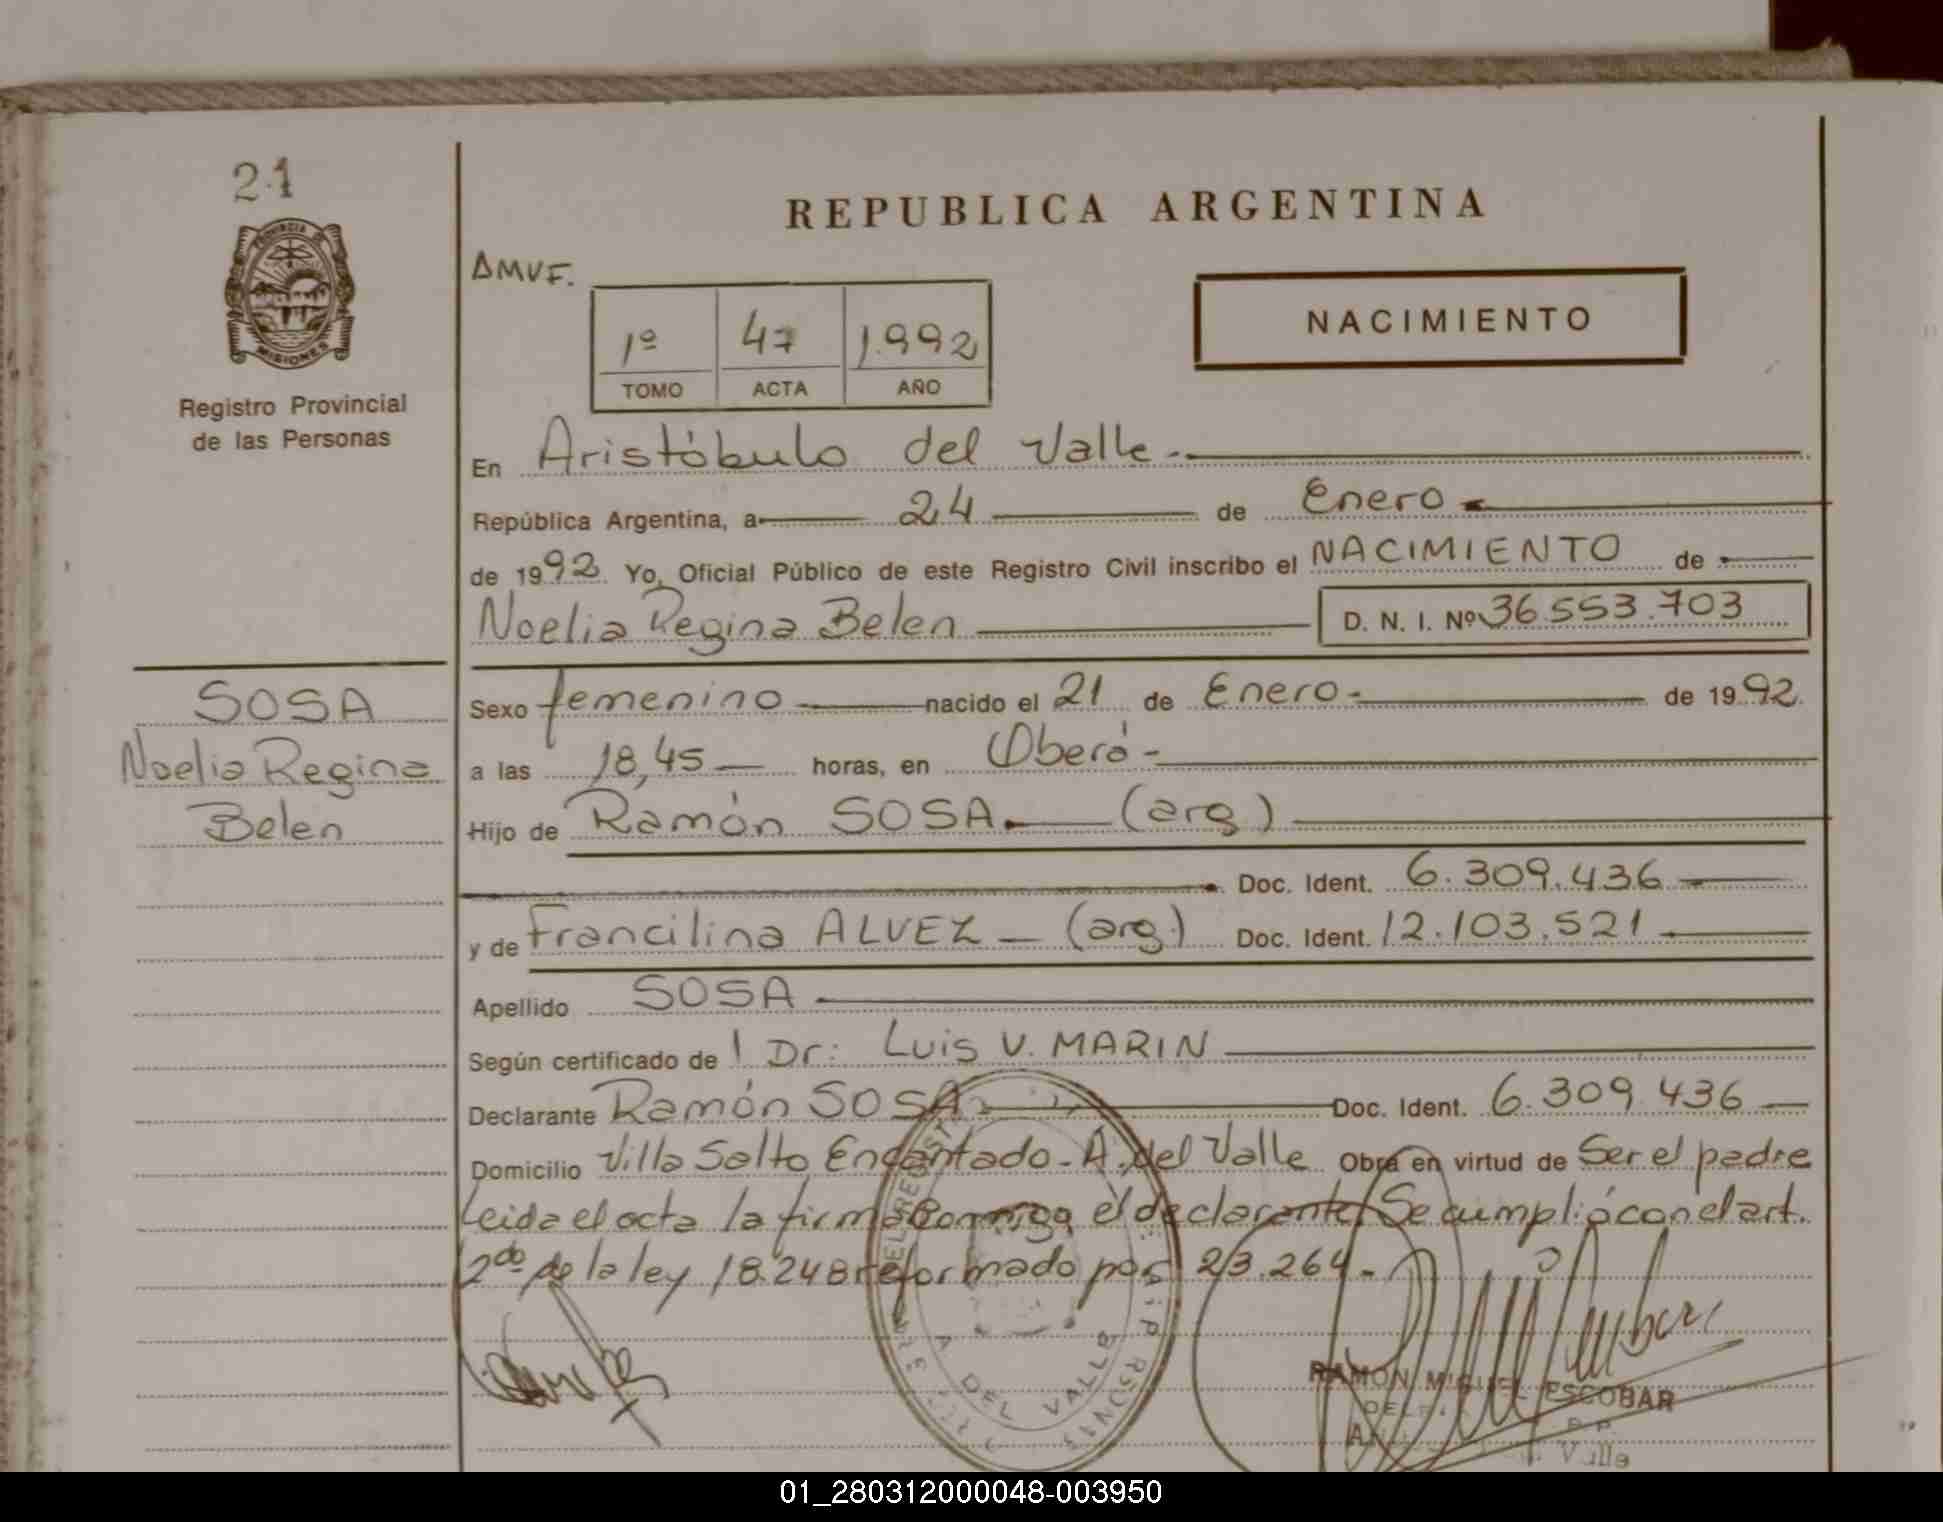 21
PROVINCIA DE
MISIONES
Registro Provincial
de las Personas
REPUBLICA ARGENTINA
AMVF.
1º 47 1.992
TOMO ACTA AÑO
NACIMIENTO
En Aristóbulo del Valle.-
República Argentina, a 24 de Enero
de 1992. Yo, Oficial Público de este Registro Civil inscribo el NACIMIENTO de
Noelia Regina Belen D. N. I. Nº 36.553.703
SOSA
Noelia Regina
Belen
Sexo femenino nacido el 21 de Enero.- de 1992.
a las 18,45 horas, en Oberá-
Hijo de Ramón SOSA. (arg)
Doc. Ident. 6.309.436
y de Francilina ALVEZ (arg.) Doc. Ident. 12.103.521
Apellido SOSA
Según certificado de Dr: Luis V. MARIN
Declarante Ramón SOSA Doc. Ident. 6.309.436
Domicilio Villa Salto Encantado- A. del Valle Obra en virtud de Ser el padre
Leida el acta la firma conmigo el declarante. Se cumplió con el art.
2do de la ley 18.248 reformado por 23.264.-
A. DEL VALLE
MISIONES
RAMON MIGUEL ESCOBAR
Valle
01_280312000048-003950